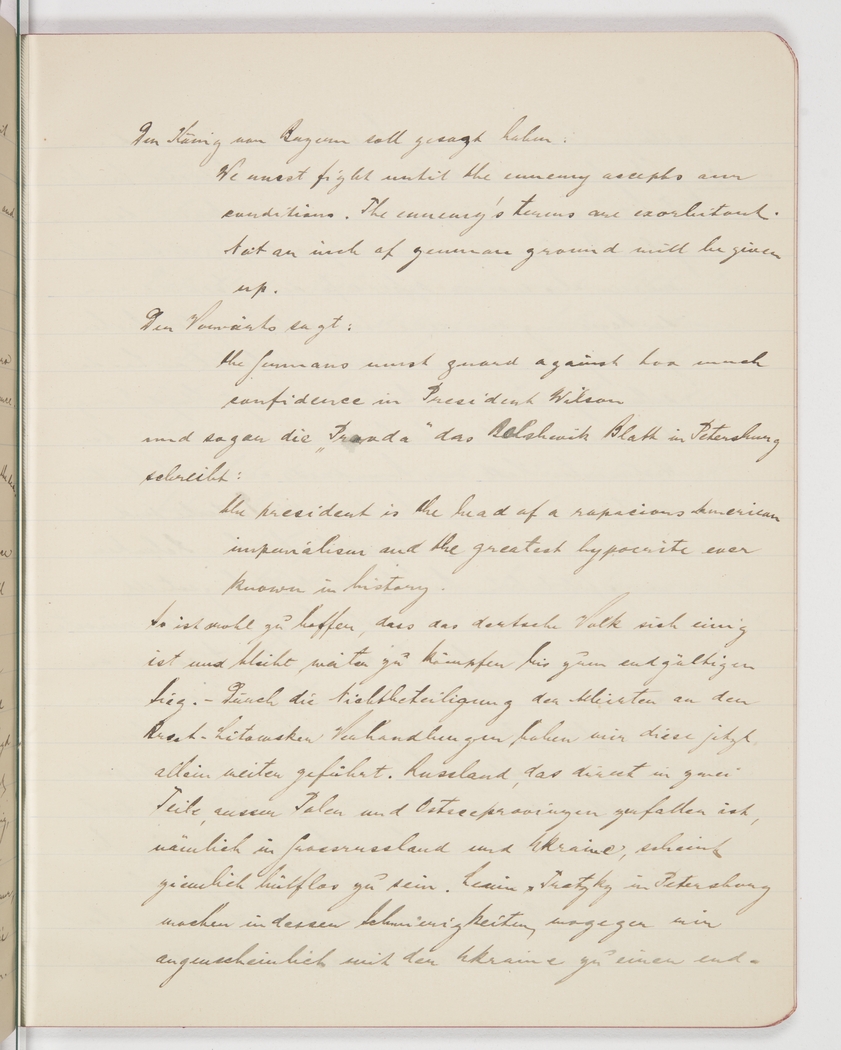 Der König von Bayern soll gesagt haben:
We must fight until the ennemy accepts our
conditions. The ennemy's terms are exorbitant.
Not an inch of german ground will be given
up.
Der Vorwärts sagt:
the Germans must guard against too much
confidence in President Wilson
und sogar die „Pravda“ das Bolshewik Blatt in Petersburg
schreibt:
the president is the head of a rapacious American
imperialism and the greatest hypocrite ever
known in history.
So ist wohl zu hoffen, dass das deutsche Volk sich einig
ist und bleibt weiter zu kämpfen bis zum endgültigen
Sieg. - Durch die Nichtbeteiligung der Alliirten an den
Brest-Litowsker Verhandlungen haben wir diese jetzt
allein weiter geführt. Russland, das direct in zwei
Teile, ausser Polen und Ostseeprovinzen zerfallen ist,
nämlich in Grossrussland und Ukraine, scheint
ziemlich hülflos zu sein. Lenin & Trotzky in Petersburg
machen indessen Schwierigkeiten, wogegen wir
augenscheinlich mit der Ukraine zu einen end=